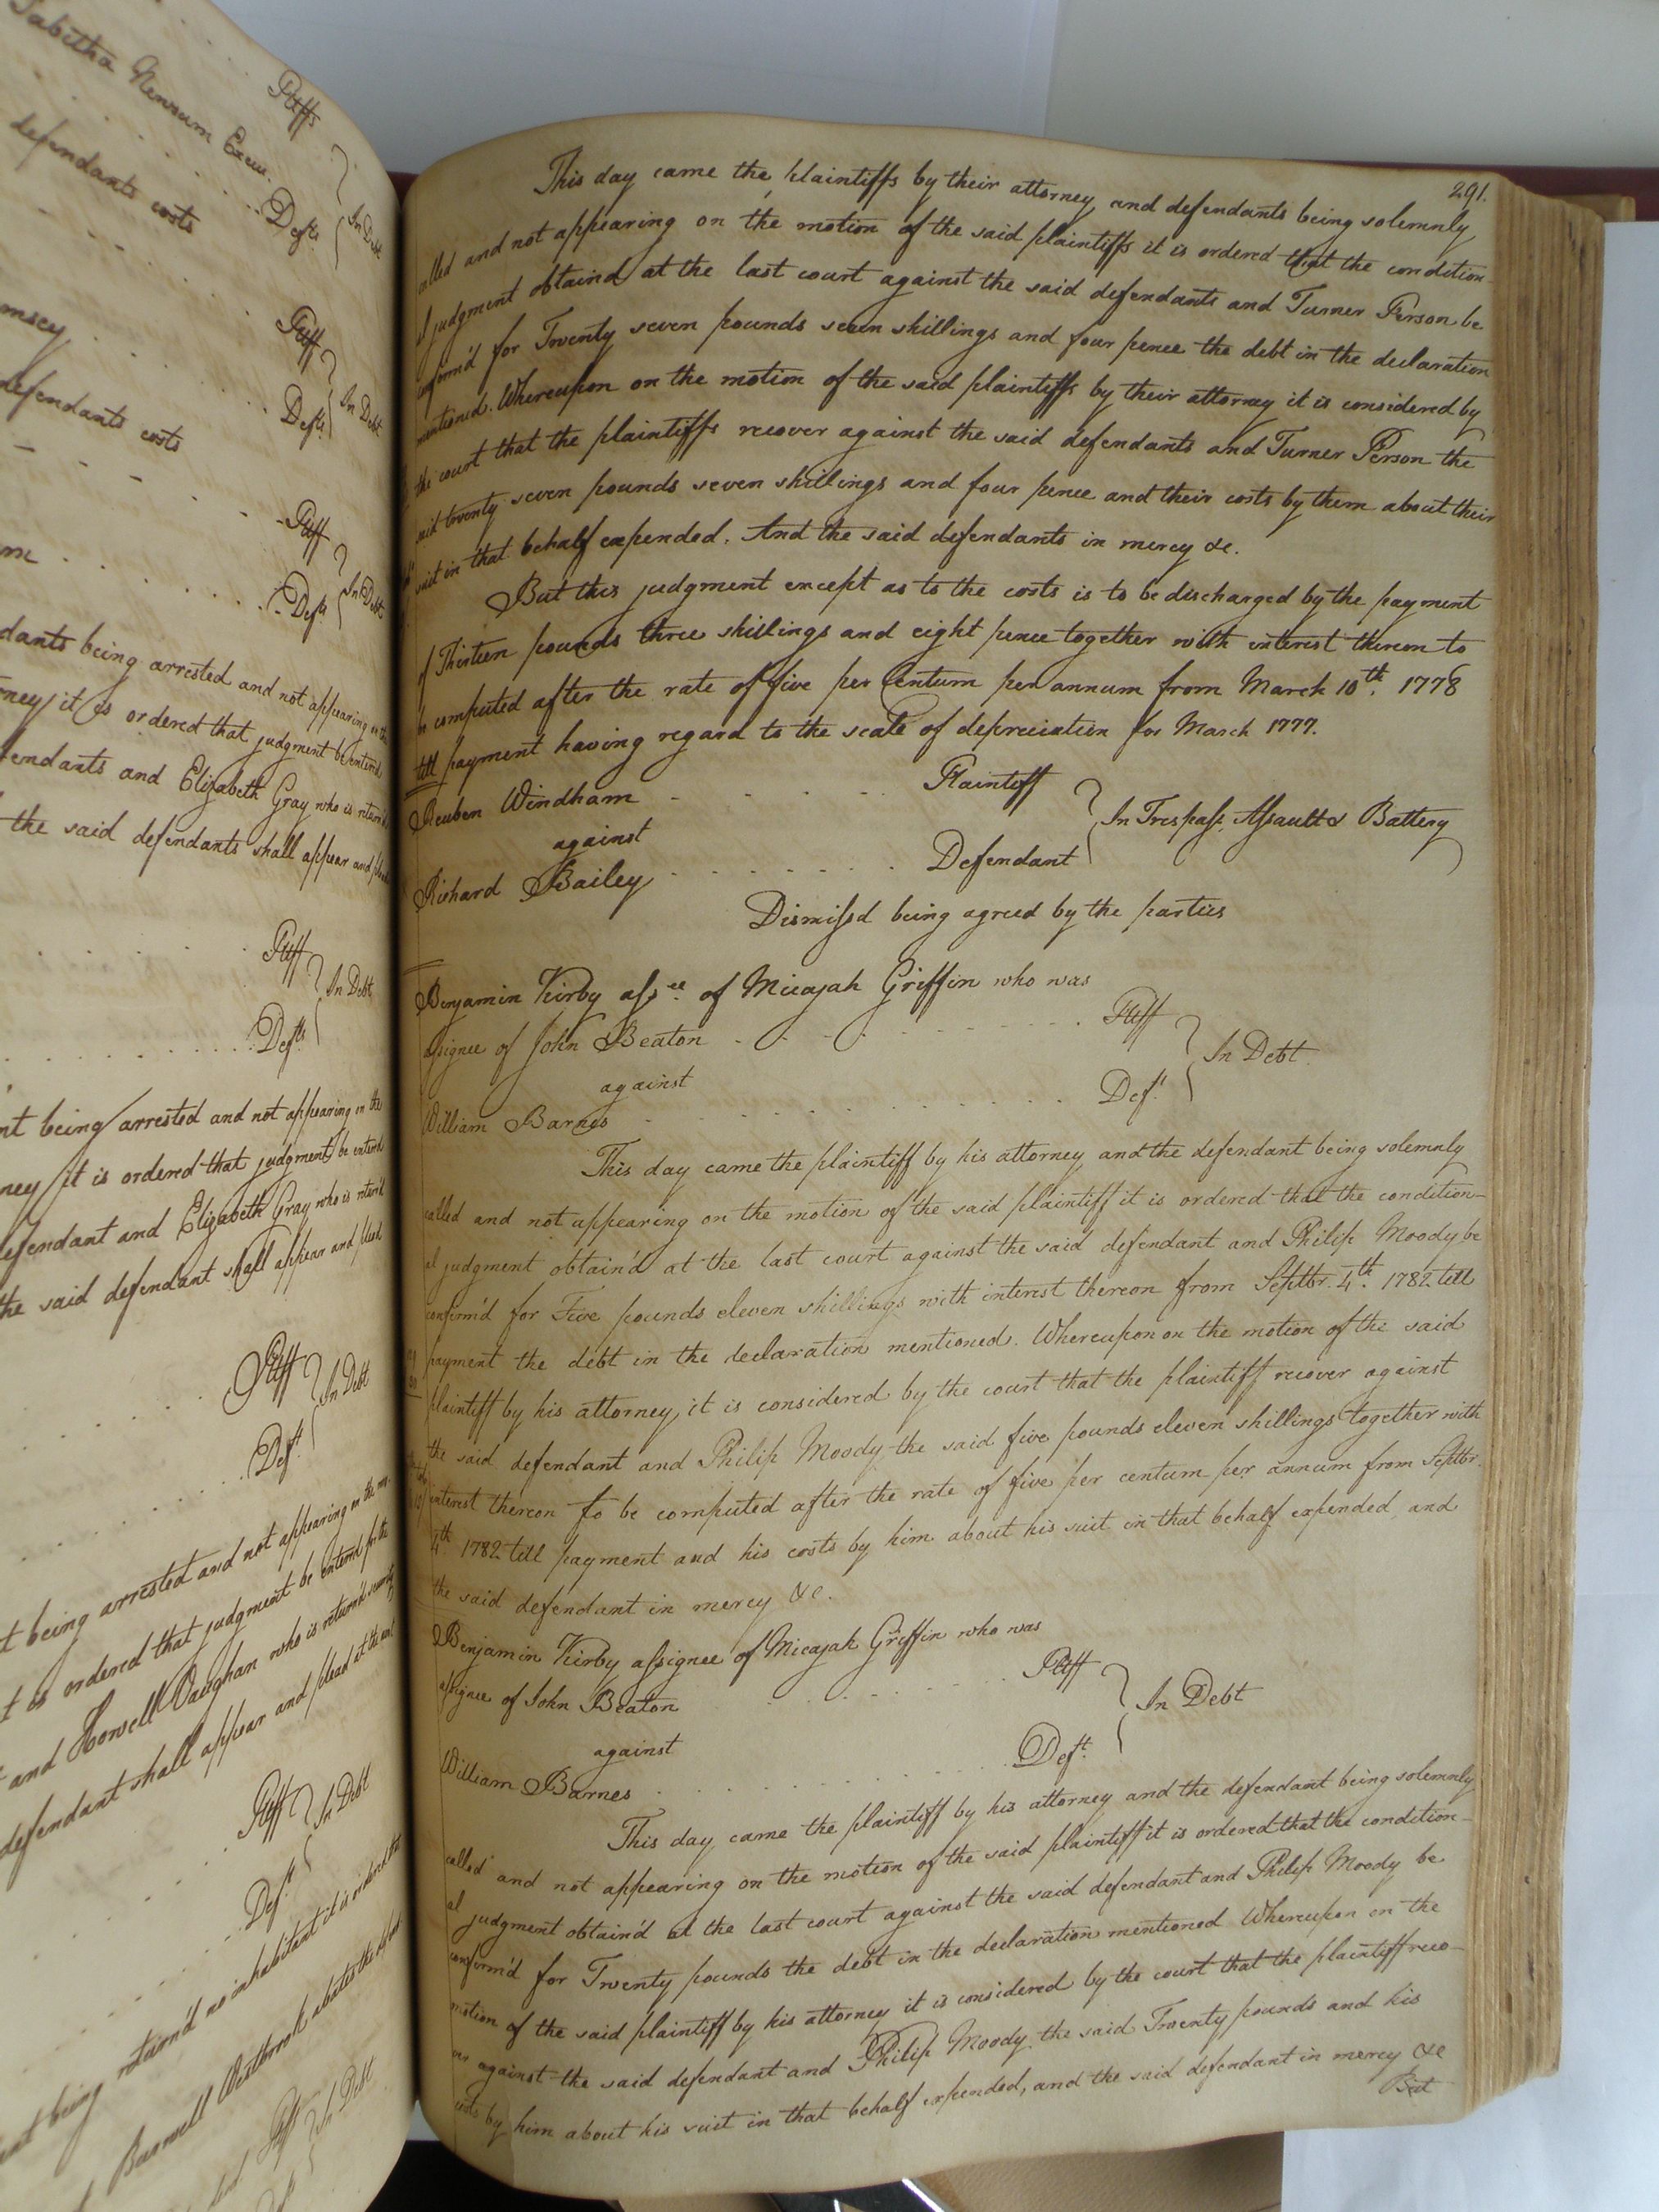 Tabitha Newsum Exew.
Pltffs
defendants costs
Defts
In Debt
Pltff
Defts
In Debt
defendants costs
Pltff
Defts
In Debt
dants being arrested and not appearing on the
ney it is ordered that judgment be enterd
fendants and Elizabeth Gray who is return'd
the said defendants shall appear and plead
Pltff
In Debt
Defts
nt being arrested and not appearing on the
ney it is ordered that judgment be enterd
efendant and Elizabeth Gray who is return'd
the said defendant shall appear and plead
Pltff
In Debt
Deft
t being arrested and not appearing on the mo-
t is ordered that judgment be enterd for the
t and Howell Vaughan who is return'd security
defendant shall appear and plead at the next
Pltff
In Debt
Deft
ant being return'd no inhabitant it is ordered that
Burwell Westbrook abates the defend
Pltff
In Debt
291.
This day came the plaintiffs by their attorney and defendants being solemnly
called and not appearing on the motion of the said plaintiffs it is ordered that the condition-
al judgment obtaind at the last court against the said defendants and Turner Person be
confirm'd for Twenty seven pounds seven shillings and four pence the debt in the declaration
mentioned. Whereupon on the motion of the said plaintiffs by their attorney it is considered by
the court that the plaintiffs recover against the said defendants and Turner Person the
said twenty seven pounds seven shillings and four pence and their costs by them about their
suit in that behalf expended. And the said defendants in mercy &c.
But this judgment except as to the costs is to be discharged by the payment
of Thirteen pounds three shillings and eight pence together with interest thereon to
be computed after the rate of five per Centum per annum from March 10th. 1778
till payment having regard to the scale of depreciation for March 1777.
Reuben Windham - - - - Plaintiff
against
In Trespass, Assault & Battery
Richard Bailey - - - - Defendant
Dismiss'd being agreed by the parties
Benjamin Kirby assee. of Micajah Griffin who was
assignee of John Beaton - - - - Pltff
against
In Debt.
William Barnes - - - - Deft.
This day came the plaintiff by his attorney and the defendant being solemnly
called and not appearing on the motion of the said plaintiff it is ordered that the condition-
al judgment obtain'd at the last court against the said defendant and Philip Moody be
confirm'd for Five pounds eleven shillings with interest thereon from Septbr. 4th. 1782 till
payment the debt in the declaration mentioned. Whereupon on the motion of the said
plaintiff by his attorney, it is considered by the court that the plaintiff recover against
the said defendant and Philip Moody the said five pounds eleven shillings together with
interest thereon to be computed after the rate of five per centum per annum from Septbr.
4th 1782 till payment and his costs by him about his suit in that behalf expended and
the said defendant in mercy &c.
Benjamin Kirby assignee of Micajah Griffin who was
assignee of John Beaton - - - - Pltff
against
In Debt
William Barnes - - - - Deft.
This day came the plaintiff by his attorney and the defendant being solemnly
called and not appearing on the motion of the said plaintiff it is ordered that the condition-
al judgment obtain'd at the last court against the said defendant and Philip Moody be
confirm'd for Twenty pounds the debt in the declaration mentioned Whereupon on the
motion of the said plaintiff by his attorney it is considered by the court that the plaintiff reco-
ver against the said defendant and Philip Moody the said Twenty pounds and his
costs by him about his suit in that behalf expended, and the said defendant in mercy &c
But